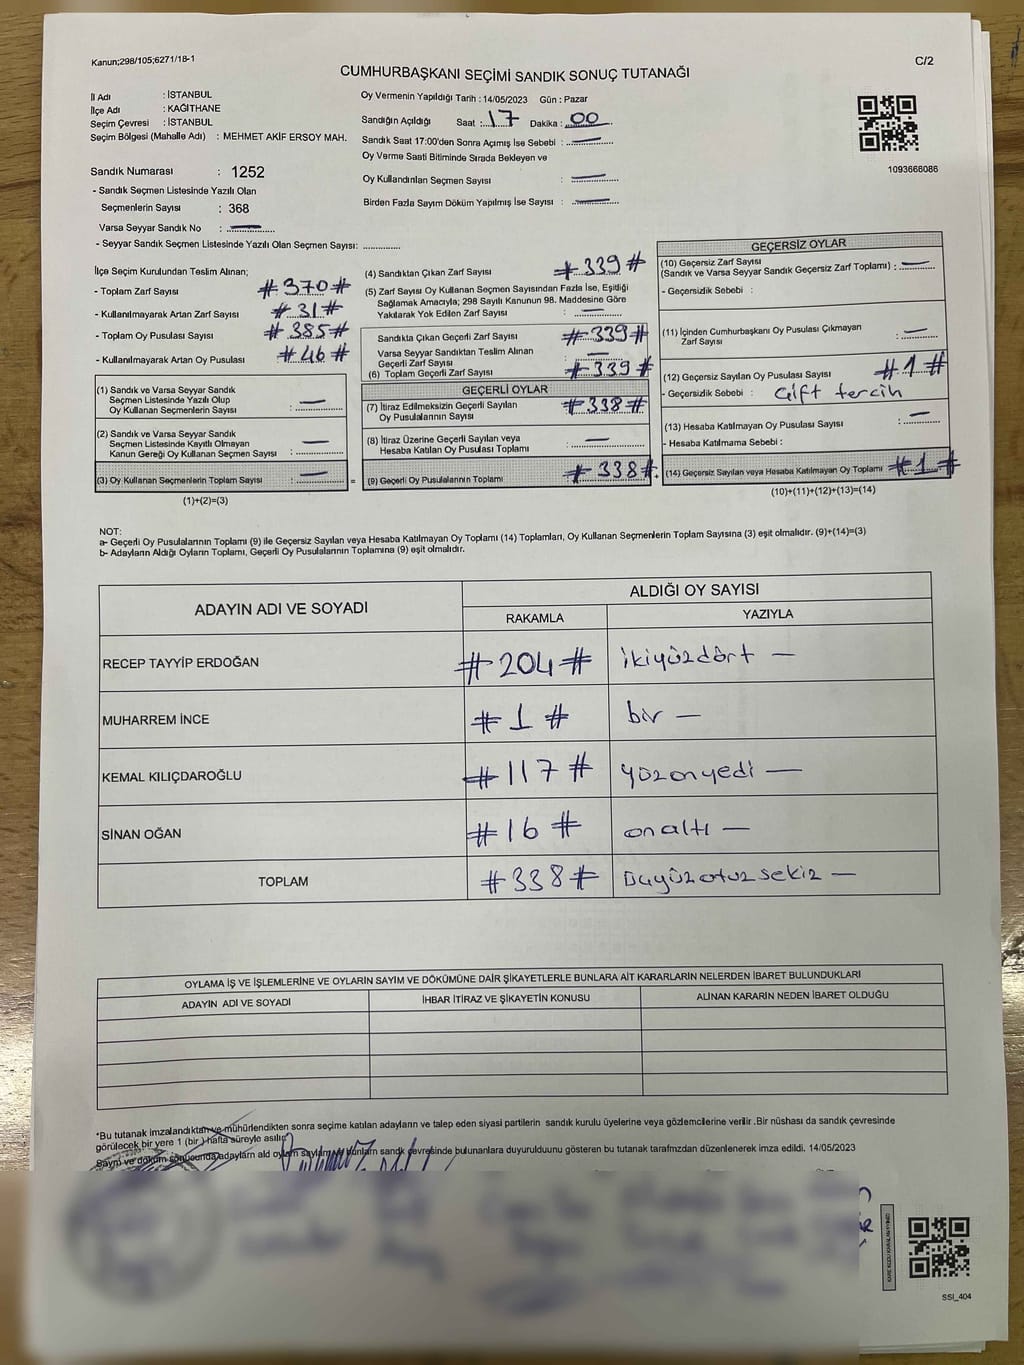 Kanun;298/105;6271/18-1
C/2
CUMHURBAŞKANI SEÇİMİ SANDIK SONUÇ TUTANAĞI
İl Adı : İSTANBUL
İlçe Adı : KAĞITHANE
Seçim Çevresi : İSTANBUL
Seçim Bölgesi (Mahalle Adı) : MEHMET AKİF ERSOY MAH.
Sandık Numarası : 1252
- Sandık Seçmen Listesinde Yazılı Olan
Seçmenlerin Sayısı : 368
Varsa Seyyar Sandık No : —
- Seyyar Sandık Seçmen Listesinde Yazılı Olan Seçmen Sayısı: ..............
Oy Vermenin Yapıldığı Tarih : 14/05/2023 Gün : Pazar
Sandığın Açıldığı Saat : 17 Dakika : 00
Sandık Saat 17:00'den Sonra Açımış İse Sebebi : —
Oy Verme Saati Bitiminde Sırada Bekleyen ve
Oy Kullandırılan Seçmen Sayısı : —
Birden Fazla Sayım Döküm Yapılmış İse Sayısı : —
1093666086
İlçe Seçim Kurulundan Teslim Alınan;
- Toplam Zarf Sayısı # 370 #
- Kullanılmayarak Artan Zarf Sayısı # 31 #
- Toplam Oy Pusulası Sayısı # 385 #
- Kullanılmayarak Artan Oy Pusulası # 46 #
(1) Sandık ve Varsa Seyyar Sandık
Seçmen Listesinde Yazılı Olup
Oy Kullanan Seçmenlerin Sayısı : —
(2) Sandık ve Varsa Seyyar Sandık
Seçmen Listesinde Kayıtlı Olmayan
Kanun Gereği Oy Kullanan Seçmen Sayısı : —
(3) Oy Kullanan Seçmenlerin Toplam Sayısı : — =
(1)+(2)=(3)
(4) Sandıktan Çıkan Zarf Sayısı # 339 #
(5) Zarf Sayısı Oy Kullanan Seçmen Sayısından Fazla İse, Eşitliği
Sağlamak Amacıyla; 298 Sayılı Kanunun 98. Maddesine Göre
Yakılarak Yok Edilen Zarf Sayısı : —
Sandıkta Çıkan Geçerli Zarf Sayısı # 339 #
Varsa Seyyar Sandıktan Teslim Alınan
Geçerli Zarf Sayısı : —
(6) Toplam Geçerli Zarf Sayısı # 339 #
GEÇERLİ OYLAR
(7) İtiraz Edilmeksizin Geçerli Sayılan
Oy Pusulalarının Sayısı # 338 #
(8) İtiraz Üzerine Geçerli Sayılan veya
Hesaba Katılan Oy Pusulası Toplamı : —
(9) Geçerli Oy Pusulalarının Toplamı # 338 #
GEÇERSİZ OYLAR
(10) Geçersiz Zarf Sayısı
(Sandık ve Varsa Seyyar Sandık Geçersiz Zarf Toplamı) : —
- Geçersizlik Sebebi :
(11) İçinden Cumhurbaşkanı Oy Pusulası Çıkmayan
Zarf Sayısı : —
(12) Geçersiz Sayılan Oy Pusulası Sayısı # 1 #
- Geçersizlik Sebebi : Çift tercih
(13) Hesaba Katılmayan Oy Pusulası Sayısı : —
- Hesaba Katılmama Sebebi :
(14) Geçersiz Sayılan veya Hesaba Katılmayan Oy Toplamı # 1 #
(10)+(11)+(12)+(13)=(14)
NOT:
a- Geçerli Oy Pusulalarının Toplamı (9) ile Geçersiz Sayılan veya Hesaba Katılmayan Oy Toplamı (14) Toplamları, Oy Kullanan Seçmenlerin Toplam Sayısına (3) eşit olmalıdır. (9)+(14)=(3)
b- Adayların Aldığı Oyların Toplamı, Geçerli Oy Pusulalarının Toplamına (9) eşit olmalıdır.
ADAYIN ADI VE SOYADI
ALDIĞI OY SAYISI
RAKAMLA YAZIYLA
RECEP TAYYİP ERDOĞAN # 204 # ikiyüzdört —
MUHARREM İNCE # 1 # bir —
KEMAL KILIÇDAROĞLU # 117 # yüzonyedi —
SİNAN OĞAN # 16 # onaltı —
TOPLAM # 338 # üçyüzotuzsekiz —
OYLAMA İŞ VE İŞLEMLERİNE VE OYLARIN SAYIM VE DÖKÜMÜNE DAİR ŞİKAYETLERLE BUNLARA AİT KARARLARIN NELERDEN İBARET BULUNDUKLARI
ADAYIN ADI VE SOYADI İHBAR İTİRAZ VE ŞİKAYETİN KONUSU ALINAN KARARIN NEDEN İBARET OLDUĞU
*Bu tutanak imzalandıktan ve mühürlendikten sonra seçime katılan adayların ve talep eden siyasi partilerin sandık kurulu üyelerine veya gözlemcilerine verilir .Bir nüshası da sandık çevresinde
görülecek bir yere 1 (bir ) hafta süreyle asılır.
Sayım ve döküm sonucunda adayların ald oyların sayıları ve bunların sandk çevresinde bulunanlara duyurulduunu gösteren bu tutanak tarafmzdan düzenlenerek imza edildi. 14/05/2023
SSI_404